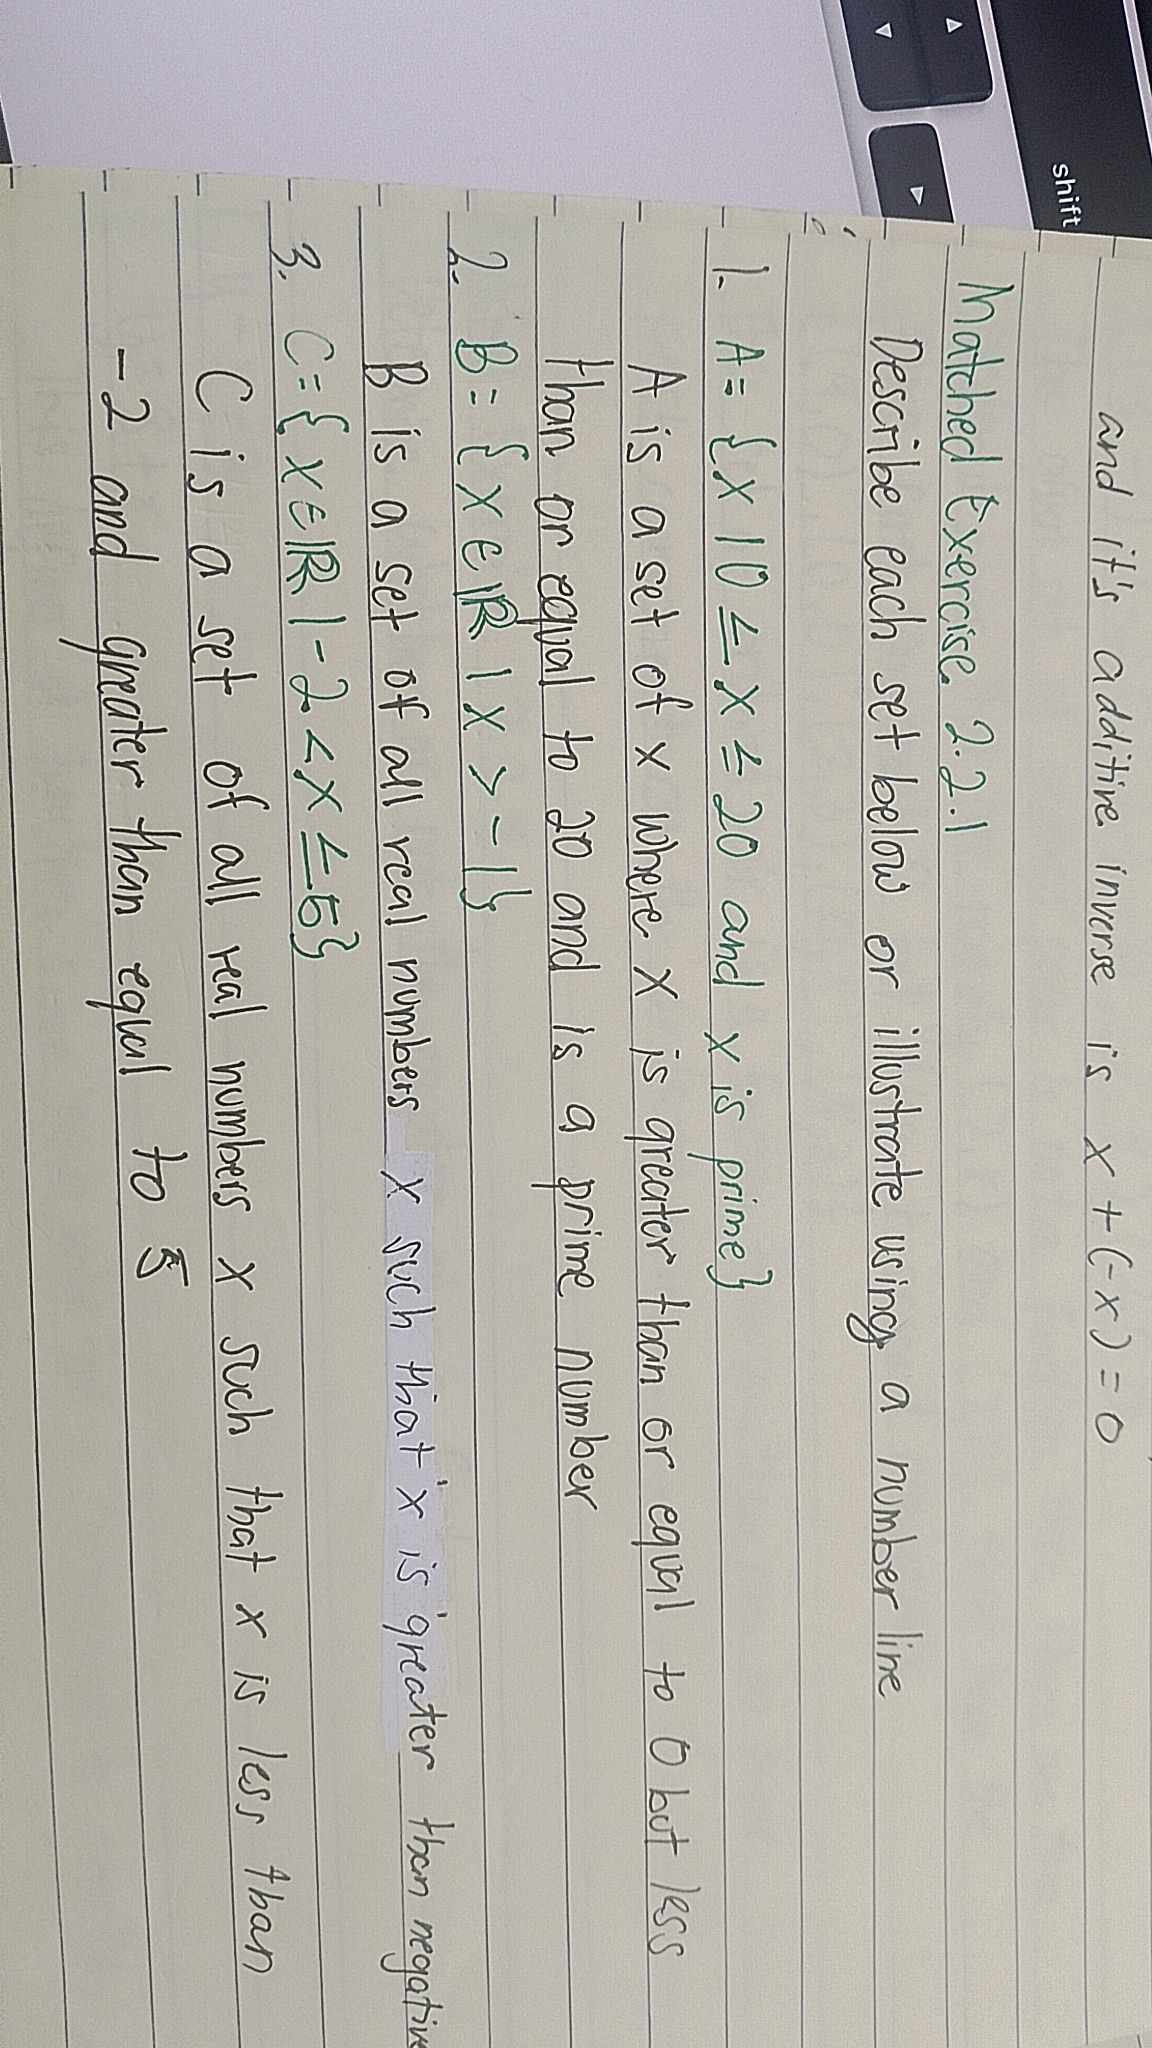 shift
and it's additive inverse is x + (-x) = 0
Matched Exercise 2.2.1
Describe each set below or illustrate using a number line
1. A = {x | 0 ≤ x ≤ 20 and x is prime}
A is a set of x where x is greater than or equal to 0 but less
than or equal to 20 and is a prime number
2. B = {x ∈ ℝ | x > -1}
B is a set of all real numbers x such that x is greater than negative
3. C = {x ∈ ℝ | -2 < x ≤ 5}
C is a set of all real numbers x such that x is less than
-2 and greater than equal to 5